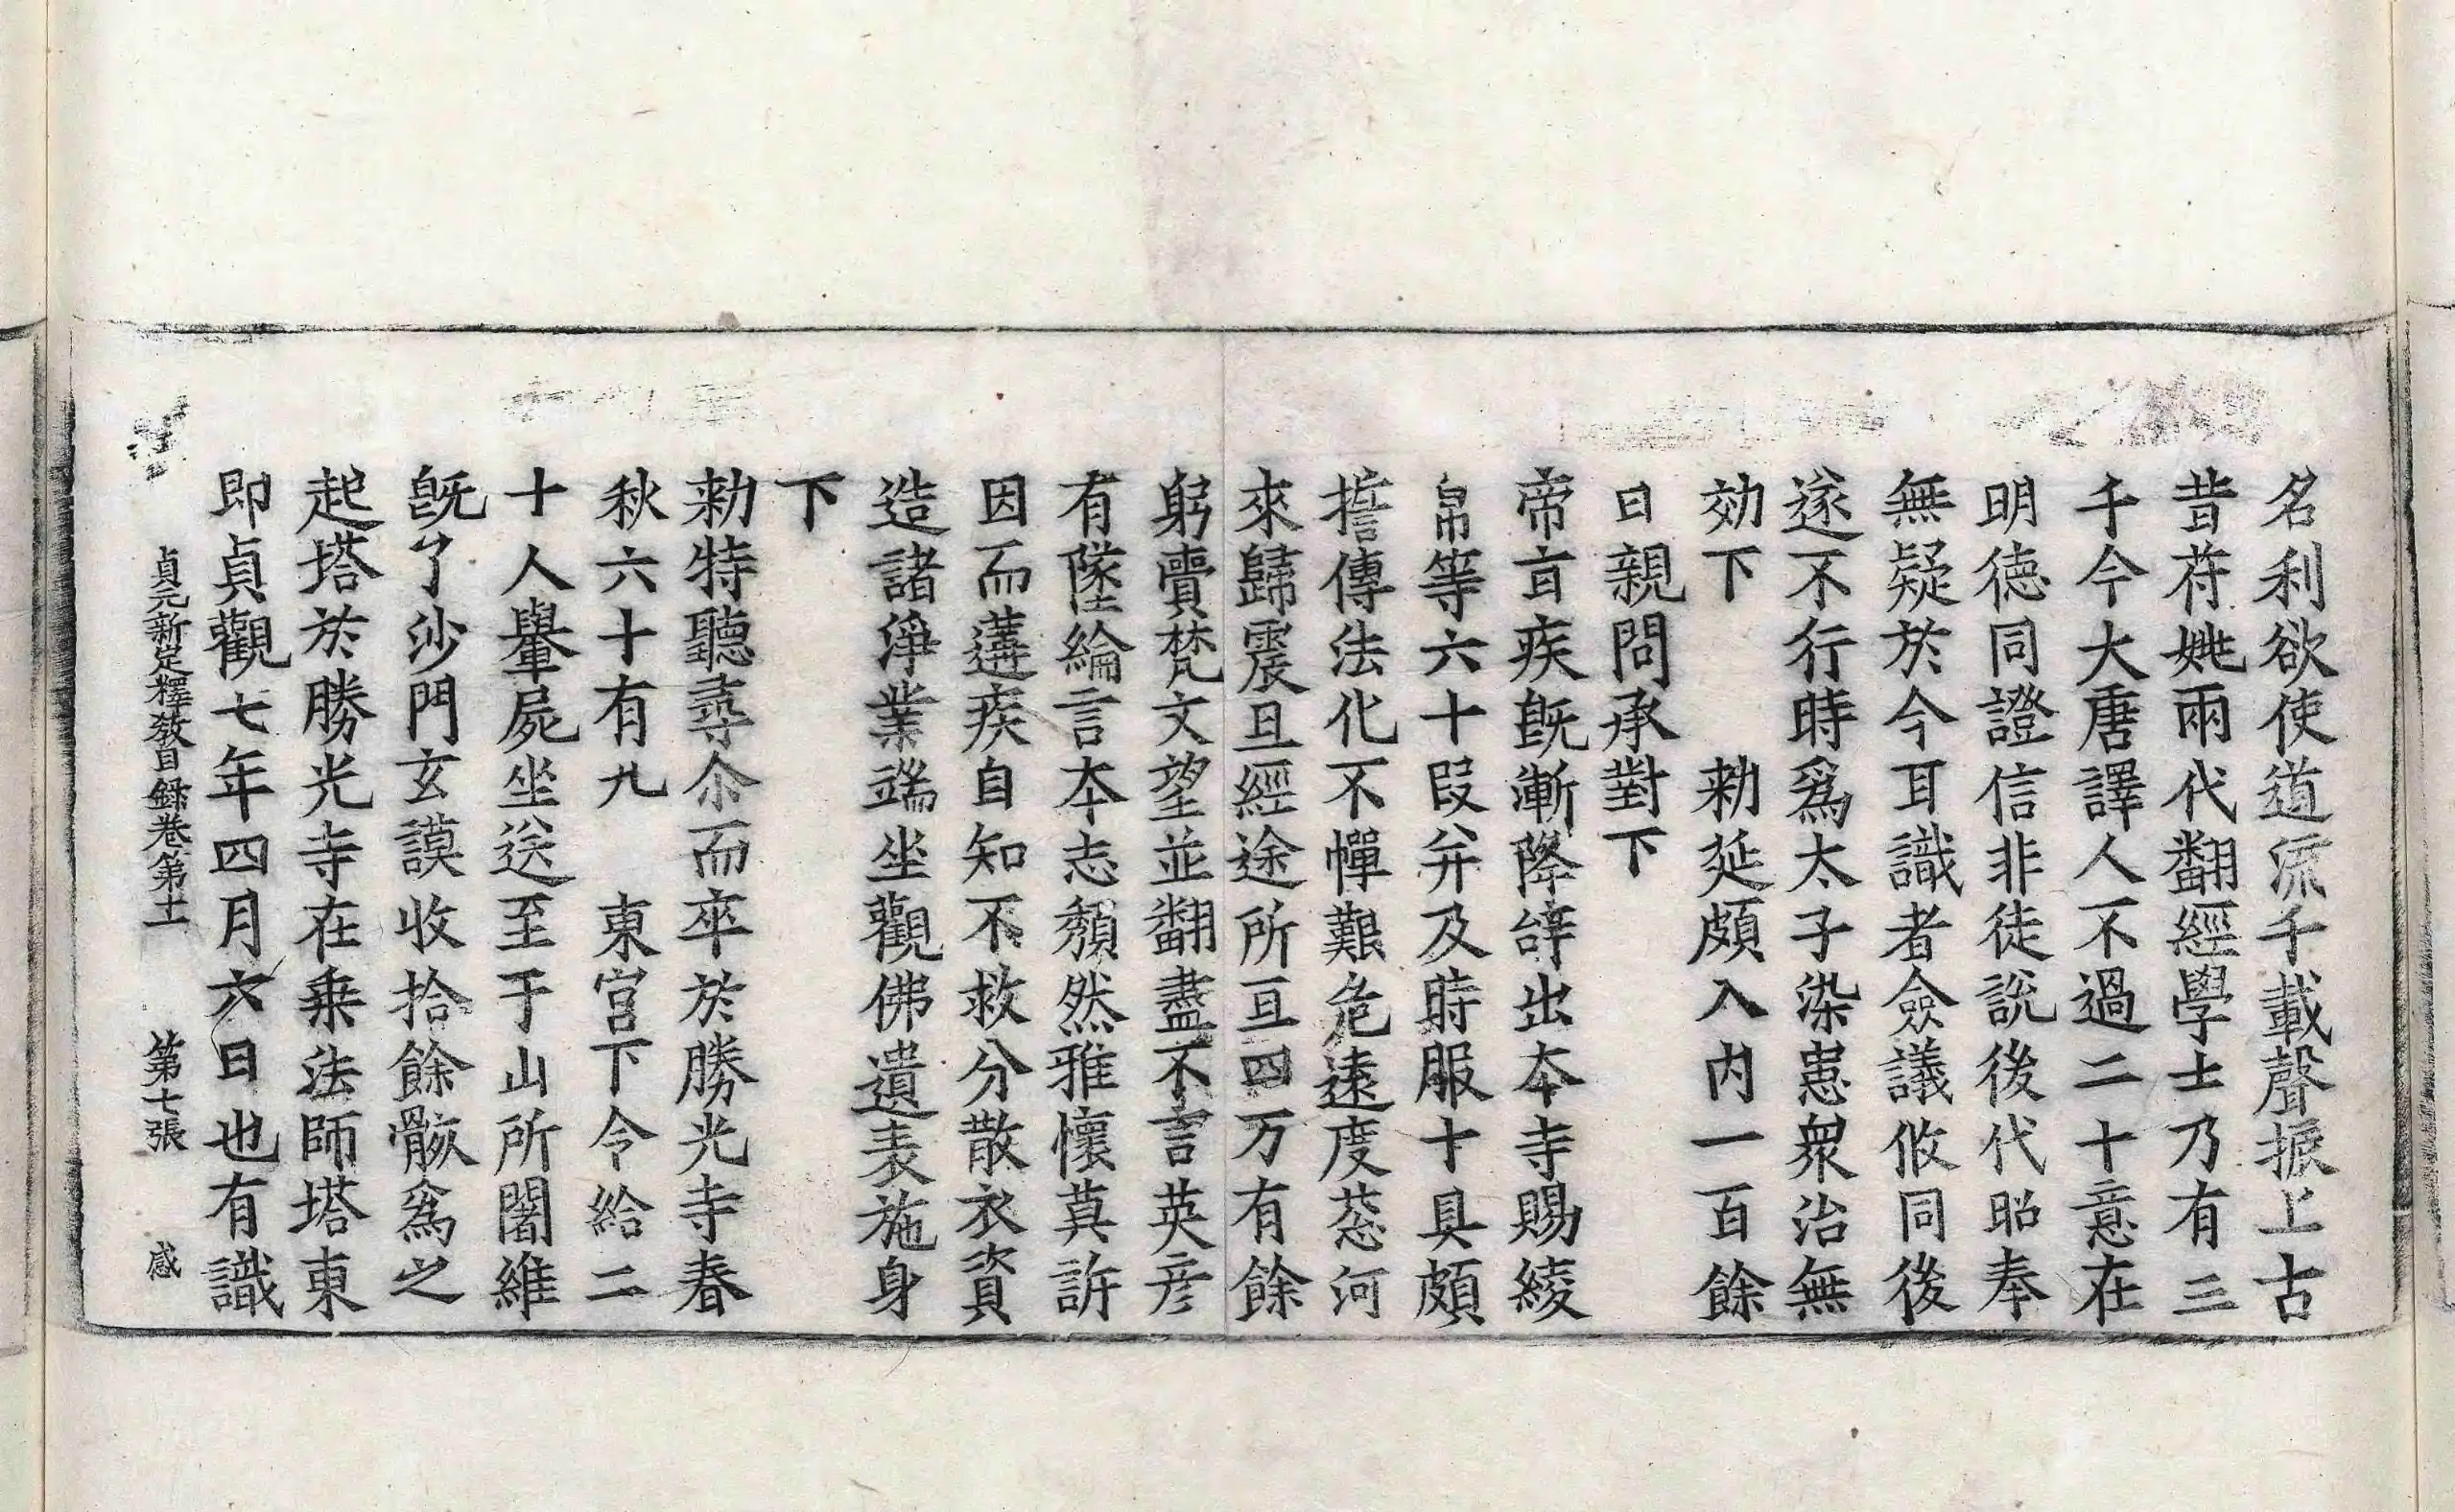 名利欲使道流千載聲振上古
昔苻姚兩代翻經學士乃有三
千今大唐譯人不過二十意在
明徳同證信非徒說後代昭奉
無疑於今耳識者僉議攸同後
遂不行時爲太子染患衆治無
効下　　勑延頗入內一百餘
日親問承對下
帝盲疾旣漸降辝出本寺賜綾
帛等六十段并及時服十具頗
誓傳法化不憚艱危遠度葱河
來歸震旦經途所亘四万有餘
躬賷梵文望並翻盡不言英彦
有墜綸言本志頽然雅懷莫訴
因而遘疾自知不救分散衣資
造諸淨業端坐觀佛遺表施身
下
勑特聽尋尒而卒於勝光寺春
秋六十有九　東宮下令給二
十人轝屍坐送至于山所闍維
旣了沙門玄謨收拾餘骸爲之
起塔於勝光寺在乗法師塔東
即貞觀七年四月六日也有識
貞元新㝎釋敎目錄卷第十一　第七張　感